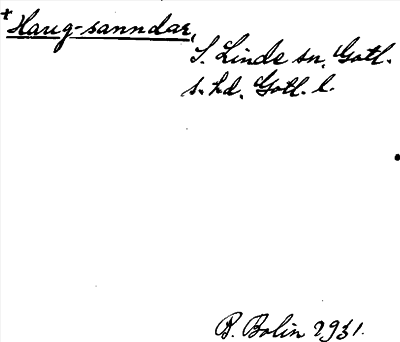 +Haug-sanndar,
S. Linde sn, Gotl.
s. hd, Gotl. l.
B. Bolin 1931.